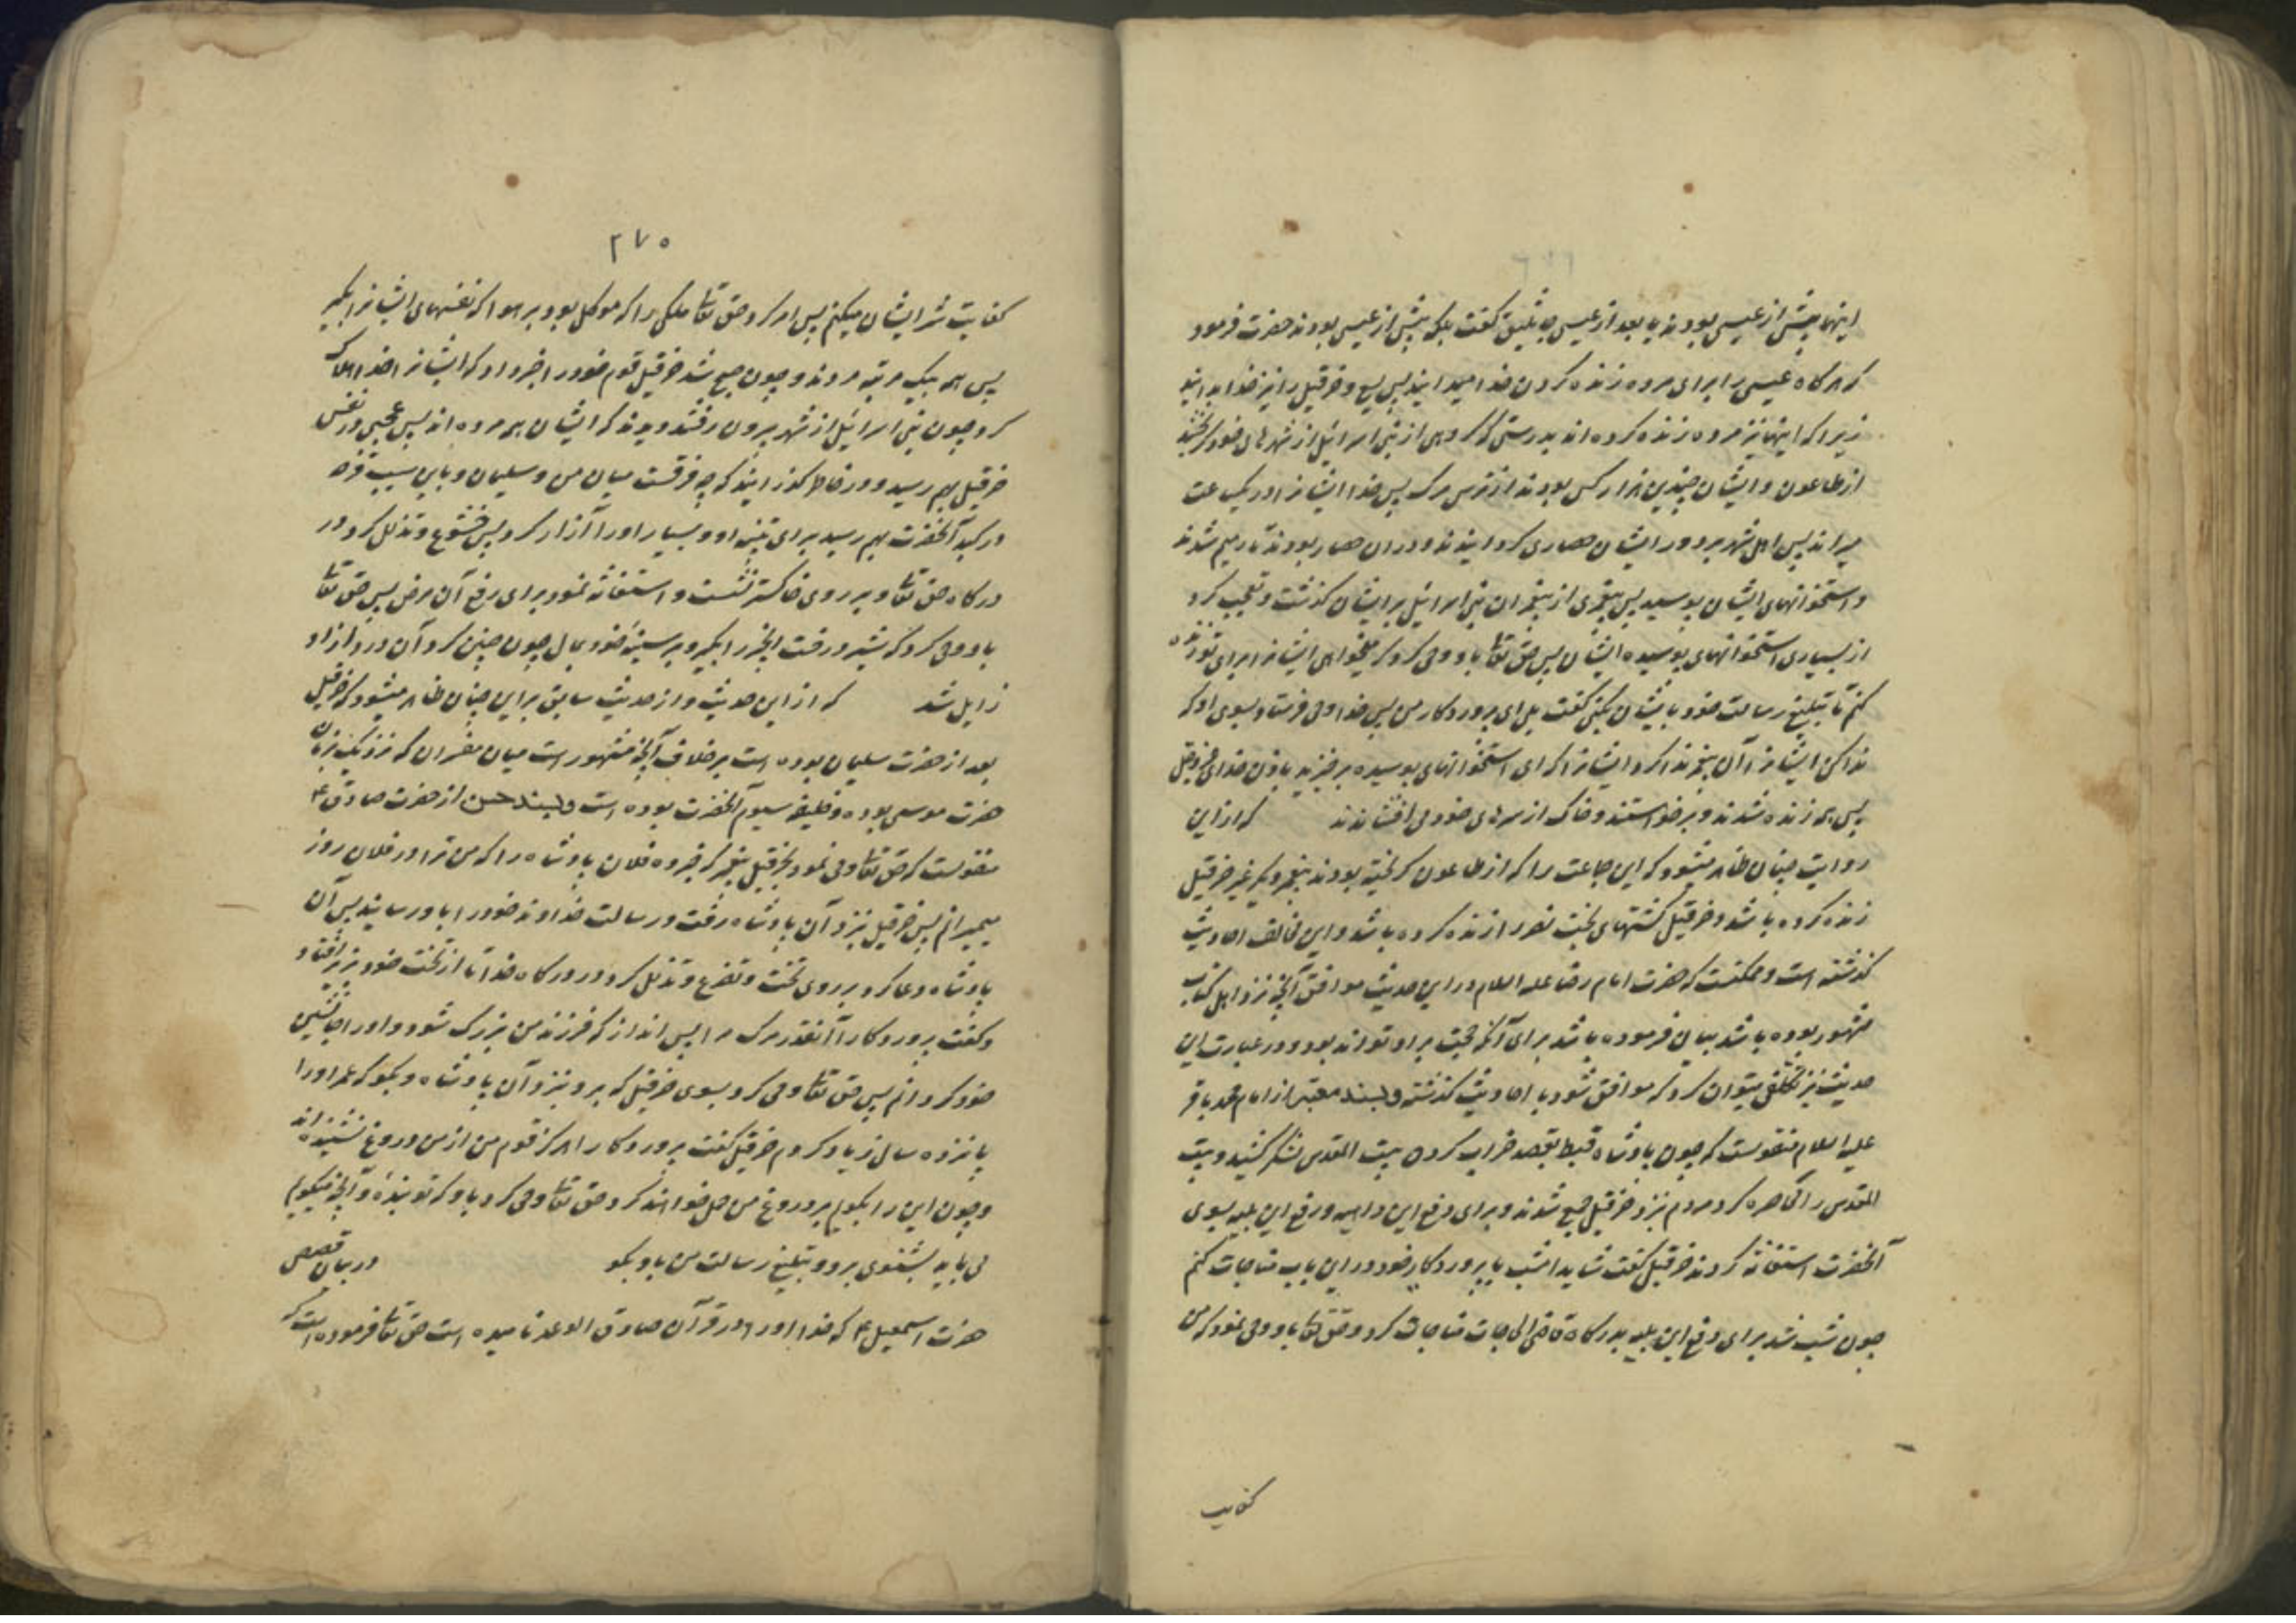 اینها پیش از عیسی بودند یا بعد از عیسی جاثلیق کفت بلکه پیش از عیسی بودند حضرت فرمود
که هرکاه عیسی را برای مرده زنده کردن خدا میدانید پس یسع و خرقیل را نیز خدا بدانید
زیرا که اینها نیز مرده زنده کرده اند بدرستی که کروهی از بنی اسرائیل از شهرهای خود کریختند
از طاعون و ایشان چندین هزار کس بودند از ترس مرک پس خدا ایشانرا در یکساعت
میراند پس اهل شهر بر دور ایشان حصاری کردانیدند و در ان حصار بودند تا رمیم شدند
و استخوانهای ایشان پوسید پس پیغمبری از پیغمبران بنی اسرائیل بر ایشان کذشت و تعجب کرد
از بسیاری استخوانهای پوسیده ایشان پس حق تعا باو وحی کرد که میخواهی ایشانرا برای تو زنده
کنم تا تبلیغ رسالت خود بایشان بکنی کفت بلی ای پروردکار من پس خدا وحی فرستاد بسوی او که
ندا کن ایشانرا آن پیغمبر ندا کرد ایشانرا که ای استخوانهای پوسیده برخیزید باذن خدای عزوجل
پس همه زنده شدند و برخواستند و خاک از سرهای خود می افشاندند که از این
روایت چنان ظاهر میشود که این جماعت را که از طاعون کریخته بودند پیغمبر دیکر غیر خرقیل
زنده کرده باشد و خرقیل کشتهای بخت نصر را زنده کرده باشد و این مخالف احادیث
کذشته است و ممکنست که حضرت امام رضا علیه السلام در این حدیث موافق آنچه نزد اهل کتاب
مشهور بوده باشد بیان فرموده باشد برای آنکه حجت بر او تواند بود و در عبارت این
حدیث نیز تکلفی میتوان کرد که موافق شود با احادیث کذشته و بسند معتبر از امام محمد باقر
علیه السلام منقولست که چون پادشاه قبط بقصد خراب کردن بیت المقدس لشکر کشید و بیت
المقدس را محاصره کرد مردم نزد خرقیل جمع شدند و برای دفع این داهیه و رفع این بلیه بسوی
آنحضرت استغاثه کردند خرقیل کفت شاید امشب با پروردکار خود در این باب مناجات کنم
چون شب شد برای دفع این بلیه بدرکاه قاضی الحاجات مناجات کرد و حق تعا باو وحی نمود که من
کفایت
۲۷۵
کفایت شر ایشان میکنم پس امر کرد حق تعا ملکی را که موکل بود بر هوا که نفسهای ایشانرا بکیر
پس همه بیک مرتبه مردند و چون صبح شد خرقیل قوم خود را خبر داد که ایشانرا خدا هلاک
کرد چون بنی اسرائیل از شهر بیرون رفتند دیدند که ایشان همه مرده اند پس عجبی در نفس
خرقیل بهم رسید و در خاطر کذرانید که چه فرقست میان من و سلیمان و باین سبب قرحه
در کبد آنحضرت بهم رسید برای تنبیه او و بسیار او را آزار کرد پس خشوع و تذلل کرد در
درکاه حق تعا و بر روی خاکستر نشست و استغاثه نمود برای رفع آن مرض پس حق تعا
باو وحی کرد که شیر درخت انجیر را بکیر و بر سینه خود بمال چون چنین کرد آن درد از او
زایل شد که از این حدیث و از حدیث سابق بر این چنان ظاهر میشود که خرقیل
بعد از حضرت سلیمان بوده است برخلاف آنچه مشهور است میان مفسران که نزدیک بزمان
حضرت موسی بوده و خلیفه سیوم آنحضرت بوده است و بسند حسن از حضرت صادق ع
منقولست که حق تعا وحی نمود بخرقیل پیغمبر که خبر ده فلان پادشاه را که من ترا در فلان روز
میمیرانم پس خرقیل نزد آن پادشاه رفت و رسالت خداوند خود را باو رسانید پس آن
پادشاه دعا کرد بر روی تخت و تضرع و تذلل کرد در درکاه خدا تا از تخت خود بزیر افتاد
و کفت پروردکارا آنقدر مرک مرا پس انداز که فرزند من بزرک شود و او را جانشین
خود کردانم پس حق تعا وحی کرد بسوی خرقیل که برو بنزد آن پادشاه و بکو که عمر او را
پانزده سال زیاد کردم خرقیل کفت پروردکارا هرکز قوم من از من دروغ نشنیده اند
و چون این را بکویم بر دروغ من حمل خواهند کرد حق تعا وحی کرد باو که تو بندهٔ و آنچه میکویم
می باید بشنوی برو و تبلیغ رسالت من باو بکو در بیان قصص
حضرت اسمعیل ع که خدا او را در قرآن صادق الوعد نامیده است حق تعا فرموده است که